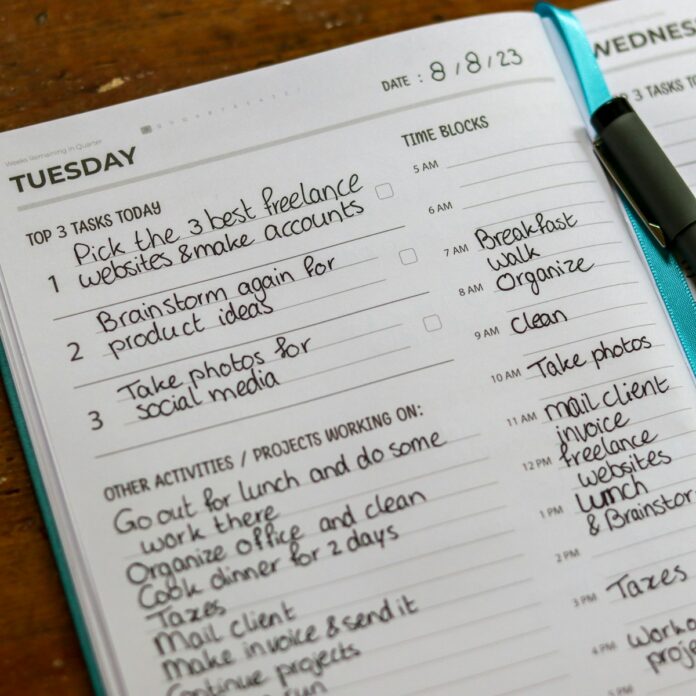 Weeks Remaining in Quarter
TUESDAY
DATE : 8 / 8 / 23
TOP 3 TASKS TODAY
1 Pick the 3 best freelance
websites & make accounts
2 Brainstorm again for
product ideas
3 Take photos for
social media
OTHER ACTIVITIES / PROJECTS WORKING ON:
Go out for lunch and do some
work there
Organize office and clean
Cook dinner for 2 days
Taxes
Mail client
Make invoice & send it
Continue projects
run
TIME BLOCKS
5 AM
6 AM
7 AM Breakfast
Walk
8 AM Organize
9 AM Clean
10 AM Take photos
11 AM mail client
invoice
12 PM freelance
websites
1 PM Lunch
& Brainstor
2 PM
3 PM Taxes
4 PM Worko
proje
WEDNES
3 TASKS TO